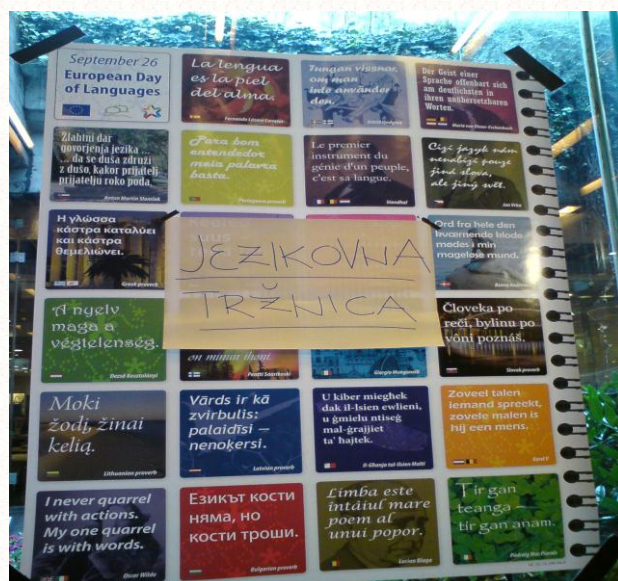 September 26
European Day
of Languages
La lengua
es la piel
del alma.
Fernando Lázaro Carreter
Tungan vissnar,
om man
inte använder
den.
Der Geist einer
Sprache offenbart sich
am deutlichsten in
ihren unübersetzbaren
Worten.
Marie von Ebner-Eschenbach
Žlahtni dar
govorjenja jezika ...
... da se duša združi
z dušo, kakor prijatelj
prijatelju roko poda.
Anton Martin Slomšek
Para bom
entendedor
meia palavra
basta.
Portuguese proverb
Le premier
instrument du
génie d'un peuple,
c'est sa langue.
Stendhal
Cizí jazyk nám
nenabízí pouze
jiná slova,
ale jiný svět.
Jan Vrba
Η γλώσσα
κάστρα καταλύει
και κάστρα
θεμελιώνει.
Greek proverb
JEZIKOVNA
TRŽNICA
Ord fra hele den
hværmende klode
mødes i min
mageløse mund.
A nyelv
maga a
végtelenség.
Dezső Kosztolányi
on minun ihoni
Pentti Saarikoski
Giorgio Manganelli
Človeka po
reči, bylinu po
vôni poznáš.
Slovak proverb
Moki
žodį, žinai
kelią.
Lithuanian proverb
Vārds ir kā
zvirbulis:
palaidīsi –
nenoķersi.
Latvian proverb
U kiber miegħek
dak il-lsien ewlieni,
u ġmielu ntiseġ
mal-ġrajjiet
ta' ħajtek.
Il-Għanja tal-Ilsien Malti
Zoveel talen
iemand spreekt,
zovele malen is
hij een mens.
Karel V
I never quarrel
with actions.
My one quarrel
is with words.
Oscar Wilde
Езикът кости
няма, но
кости троши.
Bulgarian proverb
Limba este
întâiul mare
poem al
unui popor.
Lucian Blaga
Tír gan
teanga –
tír gan anam.
Pádraig Mac Piarais